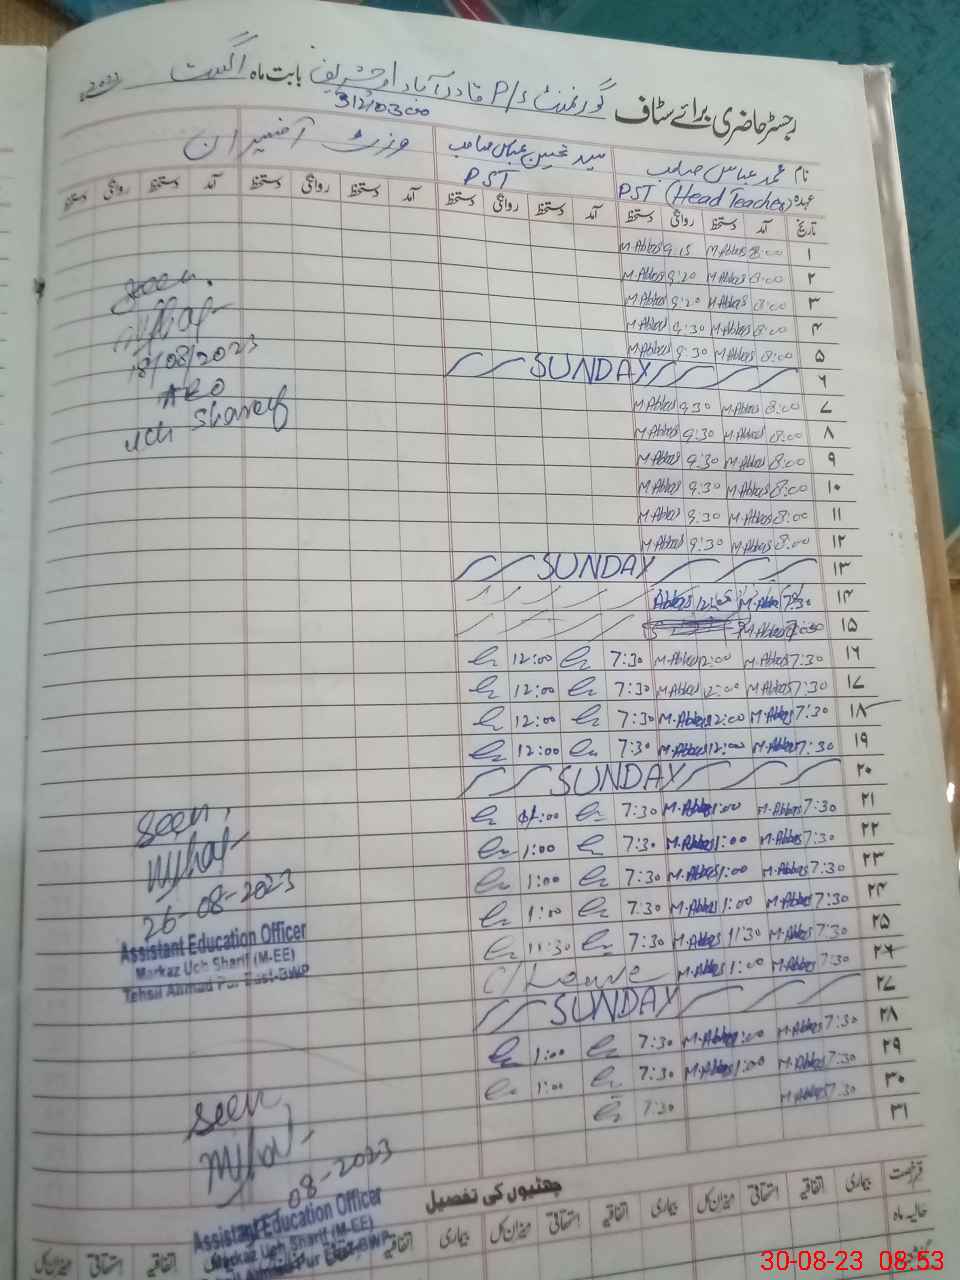 رجسٹر حاضری برائے سٹاف گورنمنٹ P/S قادر آباد اوچشریف بابت ماہ اگست 2023
31210300
نام محمد عباس صاحب سید تحسین عباس صاحب وزٹ آفیسران
عہدہ PST (Head Teacher) PST
تاریخ آمد دستخط روانگی دستخط آمد دستخط روانگی دستخط آمد دستخط روانگی دستخط آمد دستخط روانگی دستخط
۱ 8:00 M.Abbas 9:15 M.Abbas
۲ 8:00 M.Abbas 9:20 M.Abbas
۳ 8:00 M.Abbas 9:20 M.Abbas
۴ 8:00 M.Abbas 9:30 M.Abbas
۵ 8:00 M.Abbas 9:30 M.Abbas
۶ SUNDAY
۷ 8:00 M.Abbas 9:30 M.Abbas
۸ 8:00 M.Abbas 9:30 M.Abbas
۹ 8:00 M.Abbas 9:30 M.Abbas
۱۰ 8:00 M.Abbas 9:30 M.Abbas
۱۱ 8:00 M.Abbas 9:30 M.Abbas
۱۲ 8:00 M.Abbas 9:30 M.Abbas
۱۳ SUNDAY
۱۴ 7:30 M.Abbas Abbas
۱۵ M.Abbas
۱۶ 7:30 M.Abbas 12:00 M.Abbas 7:30 12:00
۱۷ 7:30 M.Abbas 12:00 M.Abbas 7:30 12:00
۱۸ 7:30 M.Abbas 12:00 M.Abbas 7:30 12:00
۱۹ 7:30 M.Abbas 12:00 M.Abbas 7:30 12:00
۲۰ SUNDAY
۲۱ 7:30 M.Abbas 1:00 M.Abbas 7:30 1:00
۲۲ 7:30 M.Abbas 1:00 M.Abbas 7:30 1:00
۲۳ 7:30 M.Abbas 1:00 M.Abbas 7:30 1:00
۲۴ 7:30 M.Abbas 1:00 M.Abbas 7:30 1:00
۲۵ 7:30 M.Abbas 11:30 M.Abbas 7:30 11:30
۲۶ 7:30 M.Abbas 1:00 M.Abbas C/Leave
۲۷ SUNDAY
۲۸ 7:30 M.Abbas 1:00 M.Abbas 7:30 1:00
۲۹ 7:30 M.Abbas 1:00 M.Abbas 7:30 1:00
۳۰ 7:30 M.Abbas 7:30
۳۱
seen.
18/08/2023
AEO
Uch Shareef
seen.
26-08-2023
Assistant Education Officer
Markaz Uch Sharif (M-EE)
Tehsil Ahmad Pur East-BWP
seen
08-2023
Assistant Education Officer
Markaz Uch Sharif (M-EE)
Tehsil Ahmad Pur East-BWP
چھٹیوں کی تفصیل
قسم رخصت بیماری اتفاقیہ استحقاقی میزان کل بیماری اتفاقیہ استحقاقی میزان کل بیماری اتفاقیہ استحقاقی میزان کل اتفاقیہ استحقاقی میزان کل
حالیہ ماہ
30-08-23 08:53